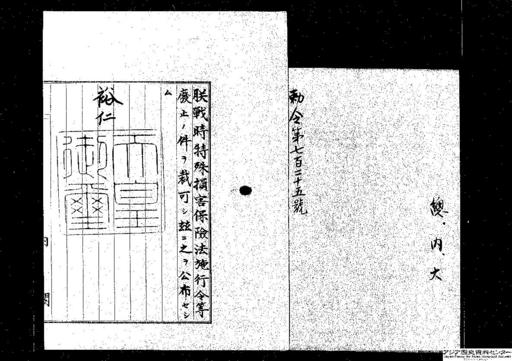 勅令第七百二十五號
總、内、大
朕戰時特殊損害保險法施行令等
廢止ノ件ヲ裁可シ玆ニ之ヲ公布セシ
ム
裕仁
天皇
御璽
内閣
アジア歴史資料センター